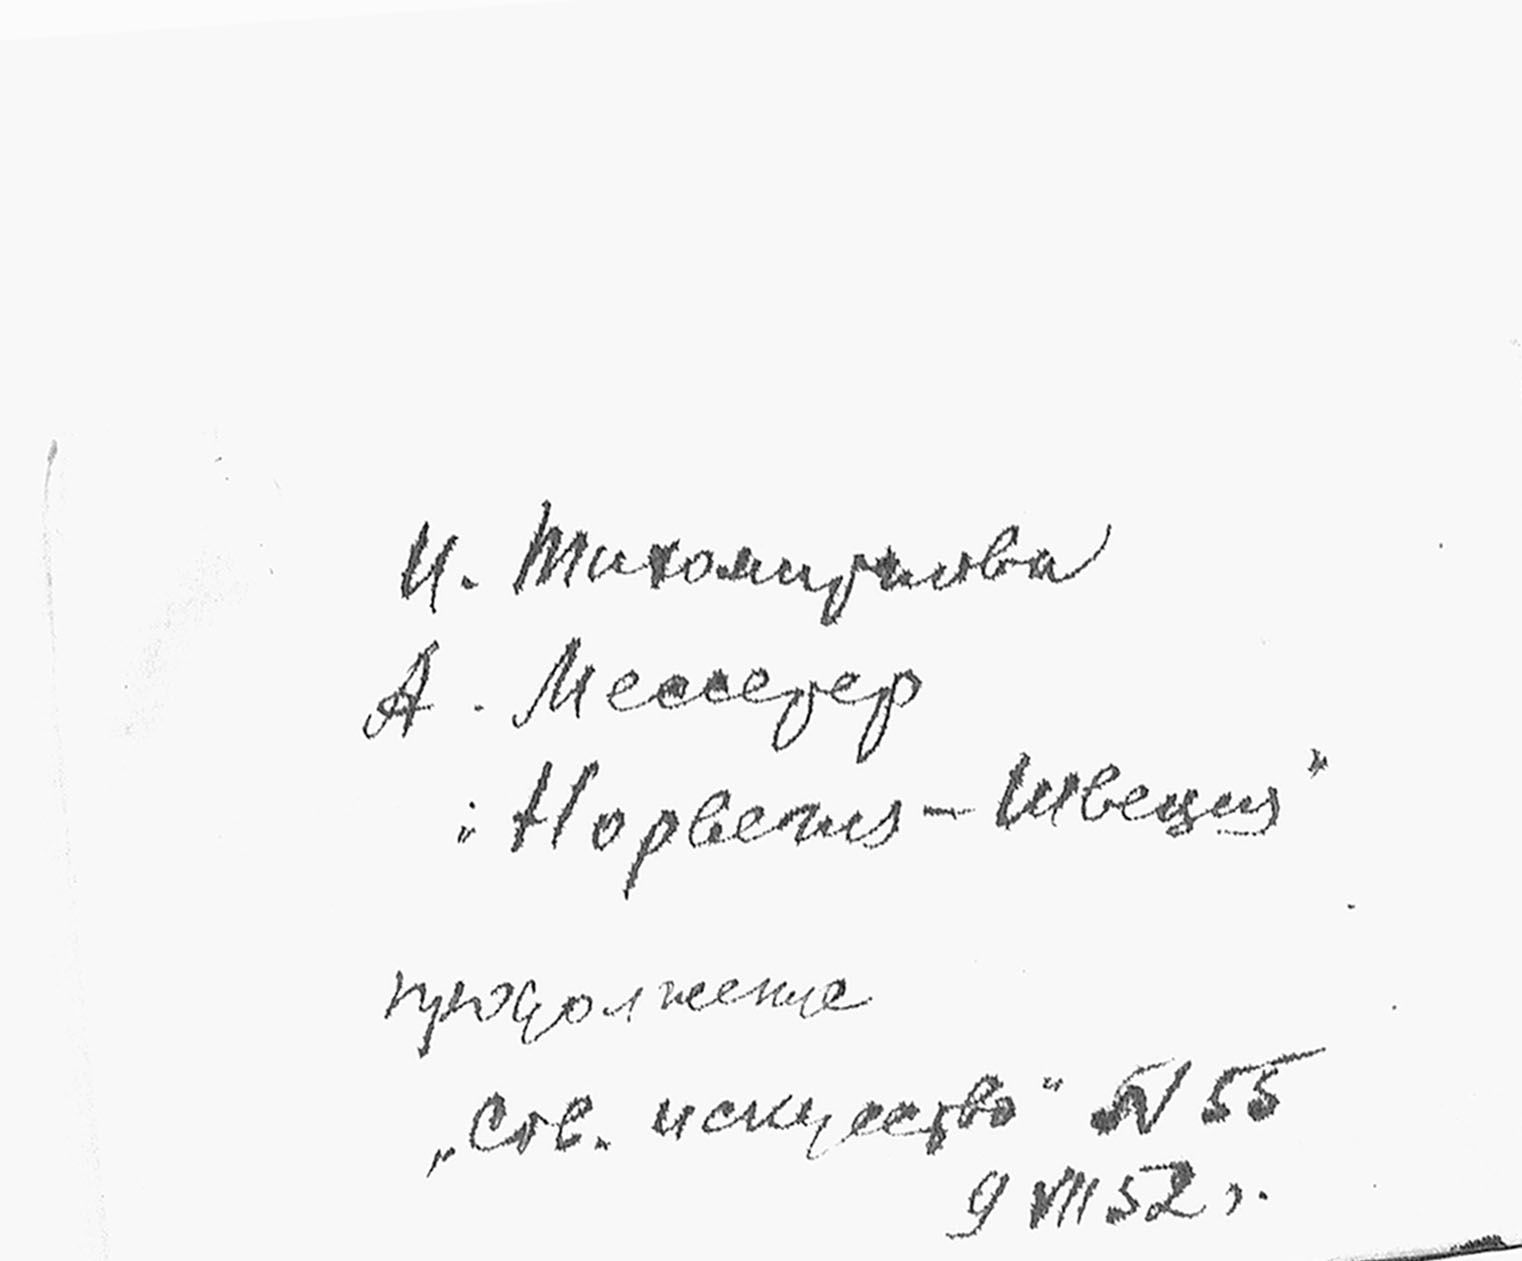 И. Тихомирнова
А. Мессерер
„Норвегия – Швеция"
продолжение
„Сов. искусство" N 55
9 VII 52 г.